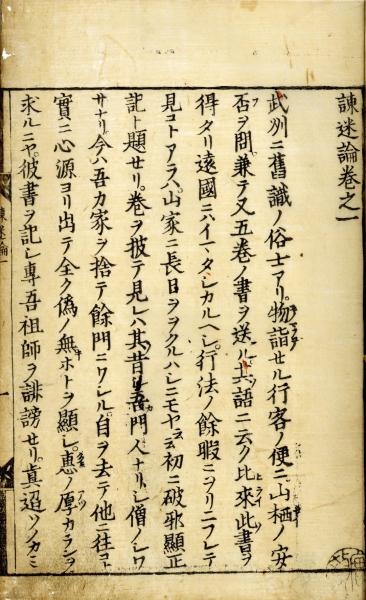 諫迷論巻之一
武州ニ舊識ノ俗士アリ。物詣セル行客ノ便ニ山栖ノ安
否ヲ問兼テ又五巻ノ書ヲ送ル其語ニ云ク比來此書ヲ
得タリ遠國ニハイマタシカルヘシ。行法ノ餘暇ニヲリニフレテ
見コトアラハ。山家ニ長日ヲヲクルハシニモヤ云云初ニ破邪顯正
記ト題セリ。巻ヲ披テ見レハ其昔シ吾門人ナリシ僧ノシワ
サナリ今ハ吾カ家ヲ捨テ餘門ニワシル。自ヲ去テ他ニ往コト
實ニ心源ヨリ出テ全ク偽ノ無ホトヲ顯シ。惠ノ厚カランヲ
求ルニヤ。彼書ヲ記シ專吾祖師ヲ誹謗セリ。真迢ソノカミ